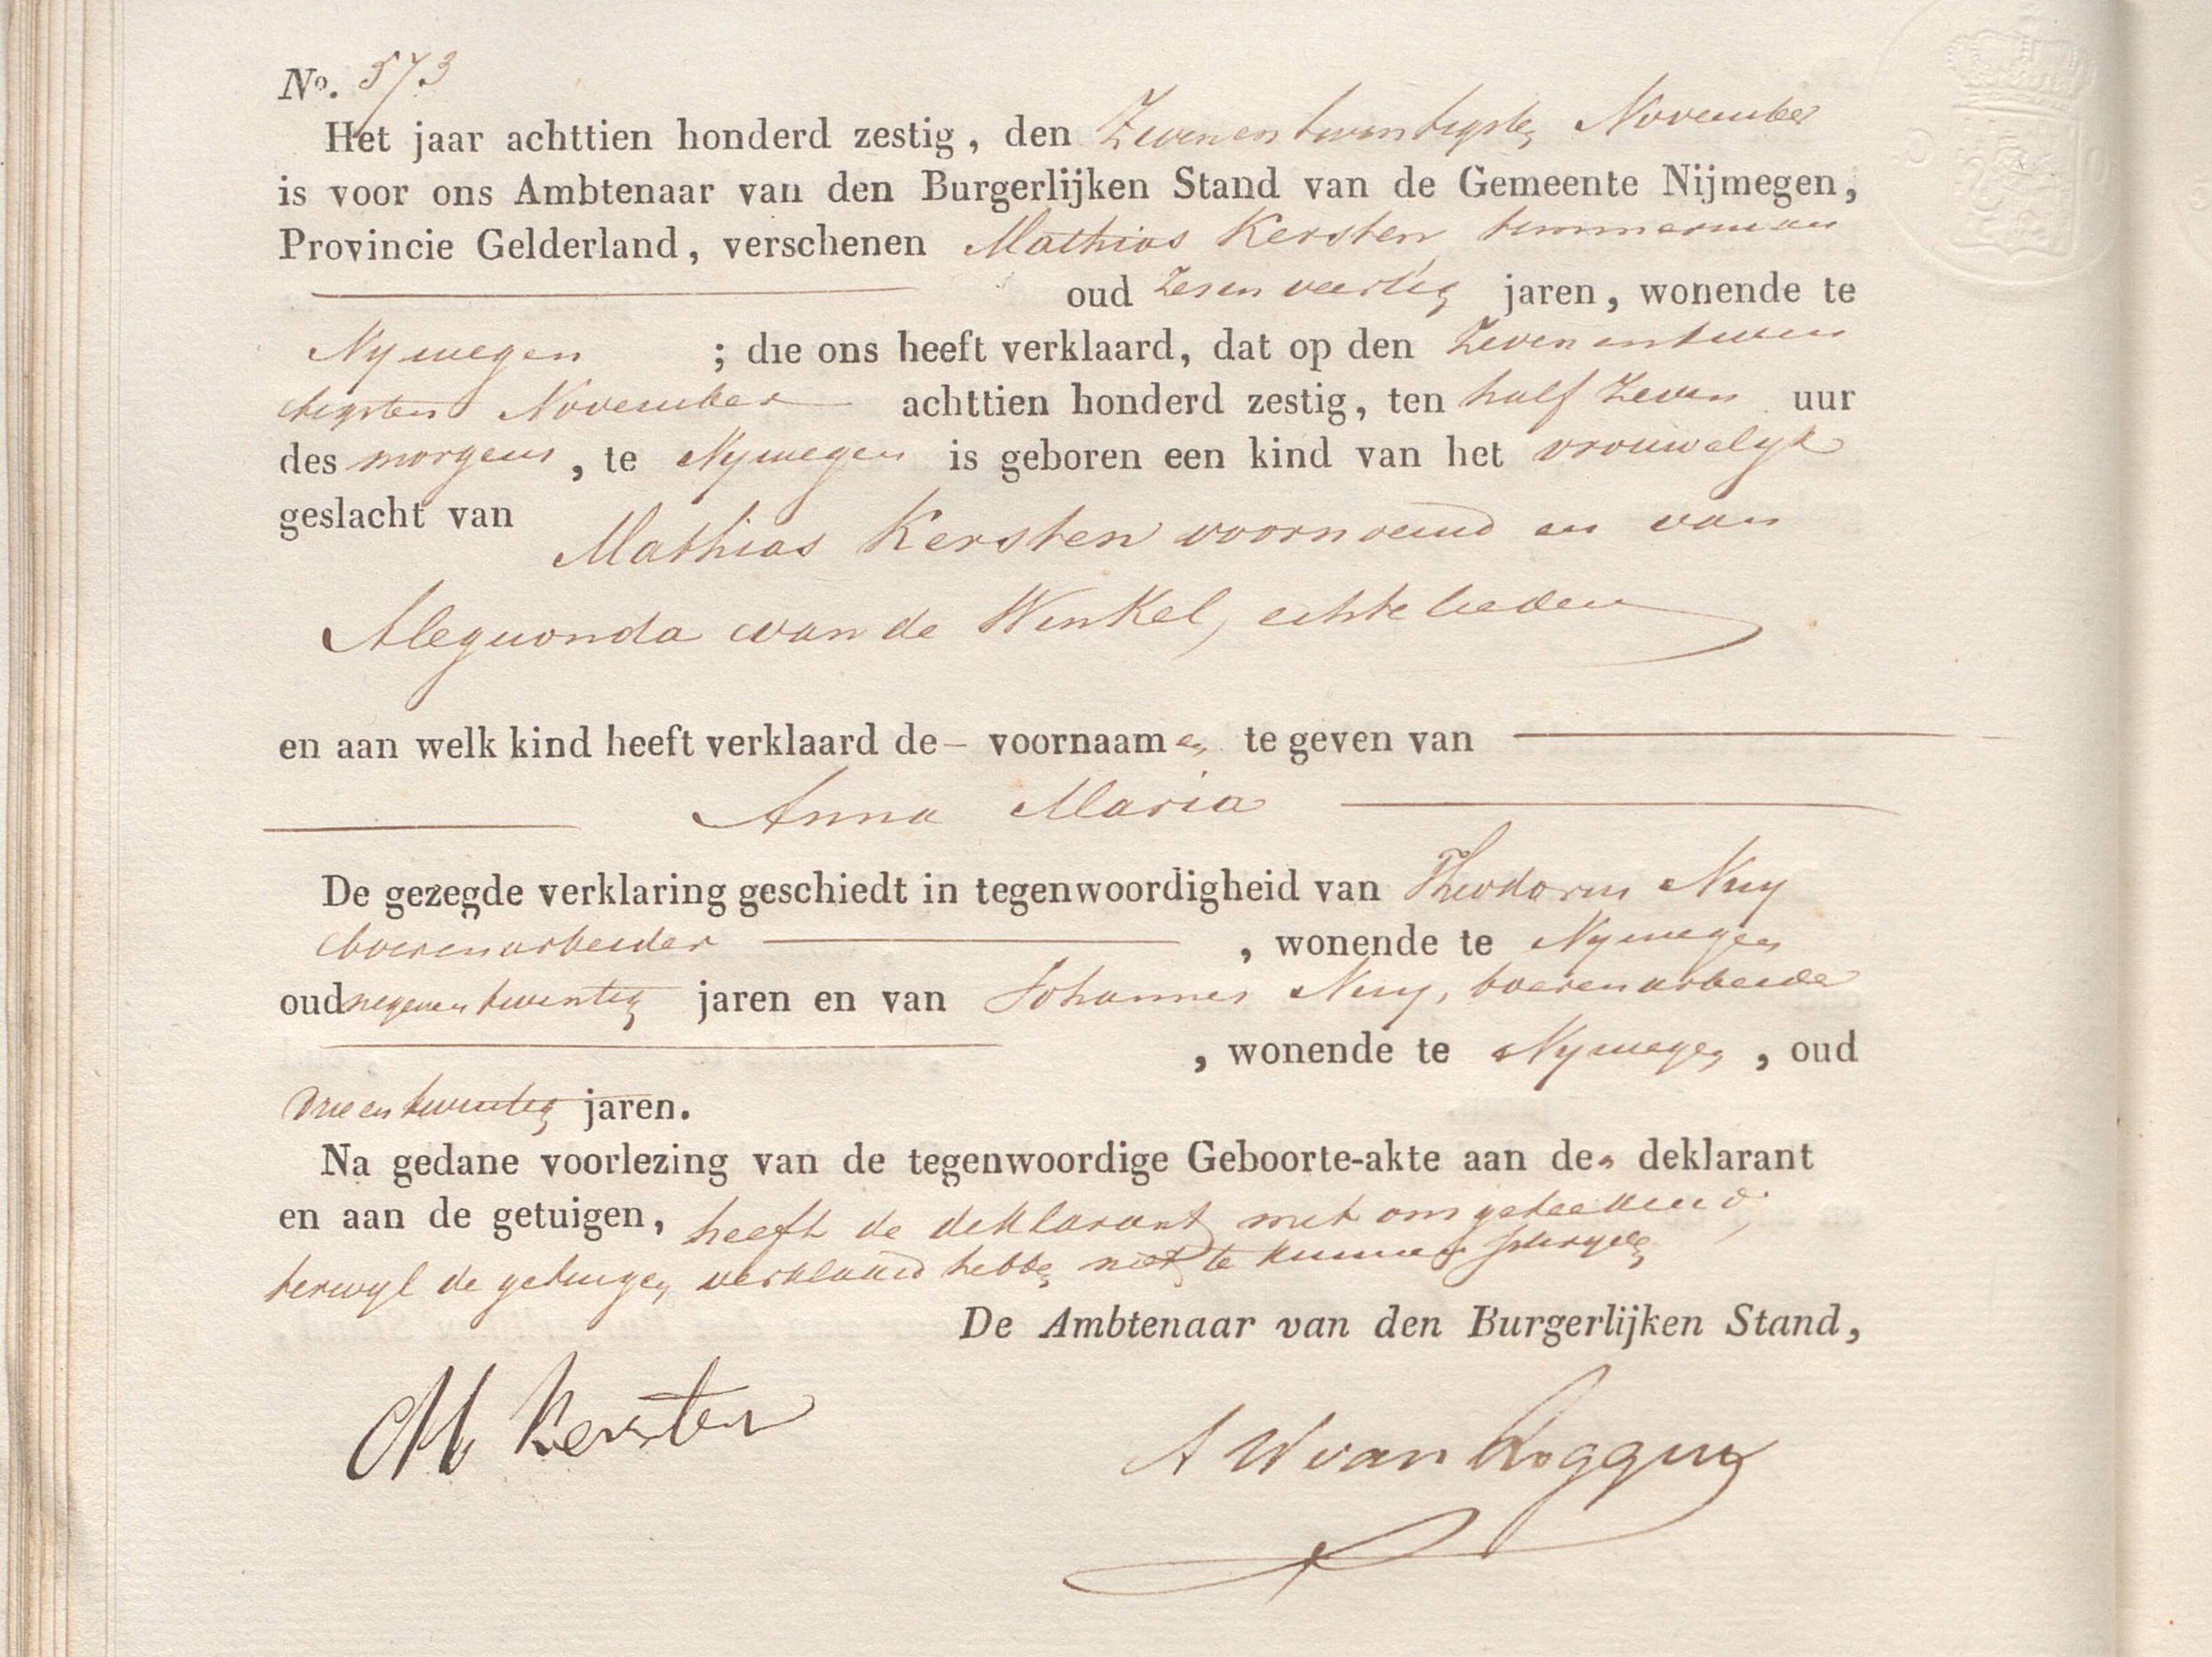 No. 573
Het jaar achttien honderd zestig, den Zevenentwintigsten November
is voor ons Ambtenaar van den Burgerlijken Stand van de Gemeente Nijmegen,
Provincie Gelderland, verschenen Mathias Kersten, timmerman
oud zesenveertig jaren, wonende te
Nymegen ; die ons heeft verklaard, dat op den zevenentwin
tigsten November achttien honderd zestig, ten half zeven uur
des morgens, te Nymegen is geboren een kind van het vrouwelyk
geslacht van Mathias Kersten voornoemd en van
Alegonda van de Winkel, echtelieden
en aan welk kind heeft verklaard de – voornaamen te geven van
Anna Maria
De gezegde verklaring geschiedt in tegenwoordigheid van Theodorus Nuy
boerenarbeider , wonende te Nymegen
oud negenentwintig jaren en van Johannes Nuy, boerenarbeider
, wonende te Nymegen , oud
drieentwintig jaren.
Na gedane voorlezing van de tegenwoordige Geboorte-akte aan den deklarant
en aan de getuigen, heeft de deklarant met ons geteekend,
terwyl de getuigen verklaard hebben niet te kunnen schryven
De Ambtenaar van den Burgerlijken Stand,
M Kersten A W van Roggen